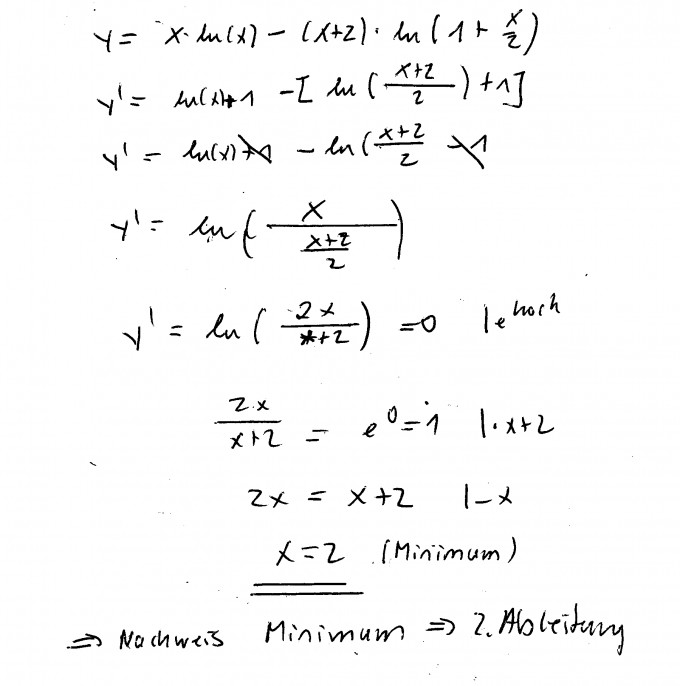 y = x · ln(x) − (x+2) · ln(1 + x/2)
y' = ln(x)+1 − [ln((x+2)/2) + 1]
y' = ln(x)+1 − ln((x+2)/2 − 1
y' = ln(x/((x+2)/2))
y' = ln(2x/(x+2)) = 0 | e hoch
2·x/(x+2) = e⁰ = 1 | · x+2
2x = x+2 | −x
x = 2 (Minimum)
⇒ Nachweis Minimum ⇒ 2. Ableitung